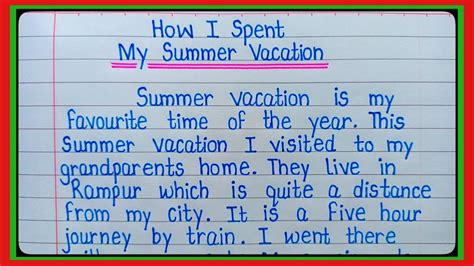 How I Spent
My Summer Vacation
Summer vacation is my
favourite time of the year. This
Summer vacation I visited to my
grandparents home. They live in
Rampur which is quite a distance
from my city. It is a five hour
journey by train. I went there